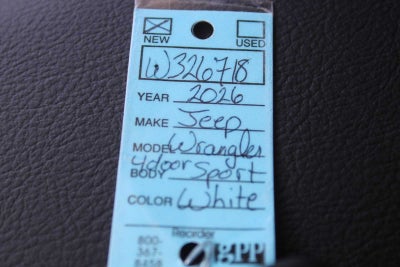 NEW USED
W326718
YEAR 2026
MAKE Jeep
MODEL Wrangler
BODY 4door Sport
COLOR White
Reorder
800-
367-
8458
gpp